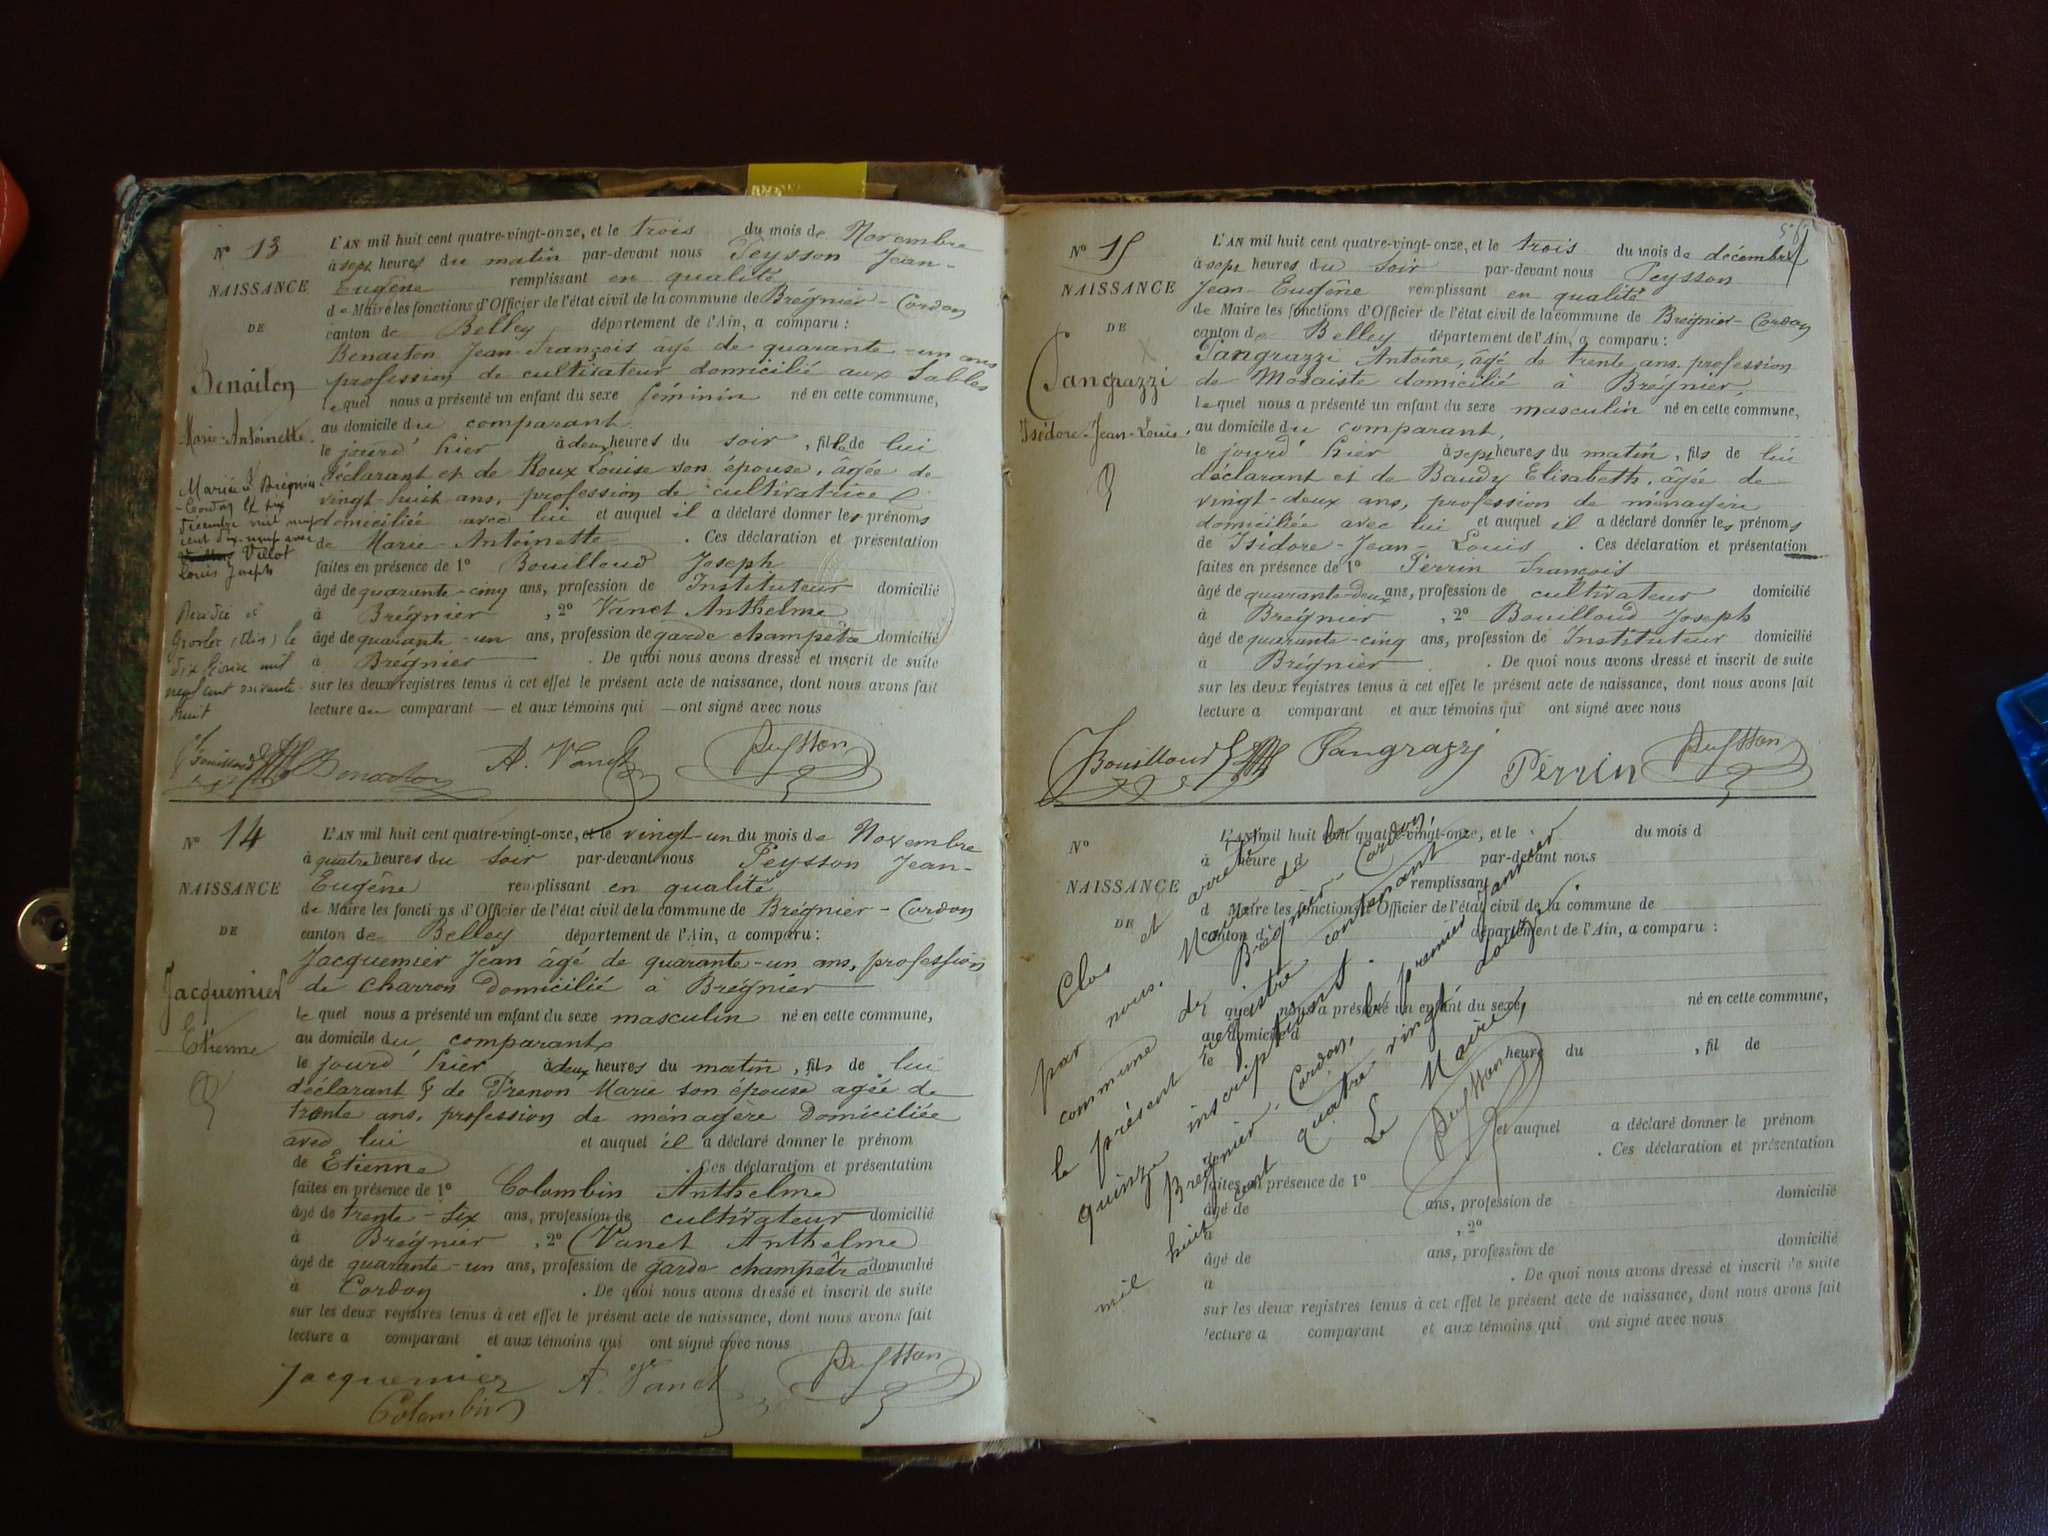 N° 13
NAISSANCE
DE
Benaiton
Marie-Antoinette.
Mariée à Brégnier
-Cordon le six
décembre mil neuf
cent dix-neuf avec
Villot
Louis Joseph
Décédée à
Groslée (Ain) le
dix février mil
neuf cent soixante-
huit
L'AN mil huit cent quatre-vingt-onze, et le trois du mois de Novembre
à sept heures du matin par-devant nous Peysson Jean-
Eugène remplissant en qualité
de Maire les fonctions d'Officier de l'état civil de la commune de Brégnier-Cordon
canton de Belley département de l'Ain, a comparu :
Benaiton Jean-François âgé de quarante-un ans
profession de cultivateur domicilié aux Sables
lequel nous a présenté un enfant du sexe féminin né en cette commune,
au domicile du comparant
le jourd'hier à deux heures du soir, fille de lui
déclarant et de Roux Louise son épouse, âgée de
vingt-huit ans, profession de cultivatrice
domiciliée avec lui et auquel il a déclaré donner les prénoms
de Marie-Antoinette . Ces déclaration et présentation
faites en présence de 1° Bouilloud Joseph
âgé de quarante-cinq ans, profession de Instituteur domicilié
à Brégnier , 2° Vanet Anthelme
âgé de quarante-un ans, profession de garde champêtre domicilié
à Brégnier . De quoi nous avons dressé et inscrit de suite
sur les deux registres tenus à cet effet le présent acte de naissance, dont nous avons fait
lecture au comparant — et aux témoins qui — ont signé avec nous
Bouilloud Benaiton A. Vanet Peysson
N° 14
NAISSANCE
DE
Jacquemier
Etienne
L'AN mil huit cent quatre-vingt-onze, et le vingt-un du mois de Novembre
à quatre heures du soir par-devant nous Peysson Jean-
Eugène remplissant en qualité
de Maire les fonctions d'Officier de l'état civil de la commune de Brégnier-Cordon
canton de Belley département de l'Ain, a comparu :
Jacquemier Jean âgé de quarante-un ans, profession
de charron domicilié à Brégnier
lequel nous a présenté un enfant du sexe masculin né en cette commune,
au domicile du comparant
le jourd'hier à deux heures du matin, fils de lui
déclarant & de Prenon Marie son épouse agée de
trente ans, profession de ménagère domiciliée
avec lui et auquel il a déclaré donner le prénom
de Etienne . Ces déclaration et présentation
faites en présence de 1° Colombin Anthelme
âgé de trente-six ans, profession de cultivateur domicilié
à Brégnier , 2° Vanet Anthelme
âgé de quarante-un ans, profession de garde champêtre domicilié
à Cordon . De quoi nous avons dressé et inscrit de suite
sur les deux registres tenus à cet effet le présent acte de naissance, dont nous avons fait
lecture a comparant et aux témoins qui ont signé avec nous
Jacquemier A. Vanet Peysson
Colombin
N° 15
NAISSANCE
DE
Pangrazzi
Isidore-Jean-Louis.
L'AN mil huit cent quatre-vingt-onze, et le trois du mois de décembre
à sept heures du soir par-devant nous Peysson
Jean-Eugène remplissant en qualité
de Maire les fonctions d'Officier de l'état civil de la commune de Brégnier-Cordon
canton de Belley département de l'Ain, a comparu :
Pangrazzi Antoine, âgé de trente ans profession
de Mosaiste domicilié à Brégnier,
lequel nous a présenté un enfant du sexe masculin né en cette commune,
au domicile du comparant,
le jourd'hier à sept heures du matin, fils de lui
déclarant et de Baudy Elisabeth, âgée de
vingt-deux ans, profession de ménagère
domiciliée avec lui et auquel il a déclaré donner les prénoms
de Isidore-Jean-Louis . Ces déclaration et présentation
faites en présence de 1° Perrin François
âgé de quarante-deux ans, profession de cultivateur domicilié
à Brégnier , 2° Bouilloud Joseph
âgé de quarante-cinq ans, profession de Instituteur domicilié
à Brégnier . De quoi nous avons dressé et inscrit de suite
sur les deux registres tenus à cet effet le présent acte de naissance, dont nous avons fait
lecture a comparant et aux témoins qui ont signé avec nous
Bouilloud Pangrazzi Perrin Peysson
N°
NAISSANCE
DE
L'AN mil huit cent quatre-vingt-onze, et le du mois d
à heure d par-devant nous
remplissant
d Maire les fonctions d'Officier de l'état civil de la commune de
canton d département de l'Ain, a comparu :
quel nous a présenté un enfant du sexe né en cette commune,
au domicile d
le heure du , fil de
et auquel a déclaré donner le prénom
. Ces déclaration et présentation
faites en présence de 1°
âgé de ans, profession de domicilié
à , 2°
âgé de ans, profession de domicilié
à . De quoi nous avons dressé et inscrit de suite
sur les deux registres tenus à cet effet le présent acte de naissance, dont nous avons fait
lecture a comparant et aux témoins qui ont signé avec nous
Clos et arrêté
par nous, Maire de la
commune de Brégnier-Cordon,
le présent registre contenant
quinze inscriptions.
Brégnier-Cordon, le premier Janvier
mil huit cent quatre vingt douze.
Le Maire,
Peysson